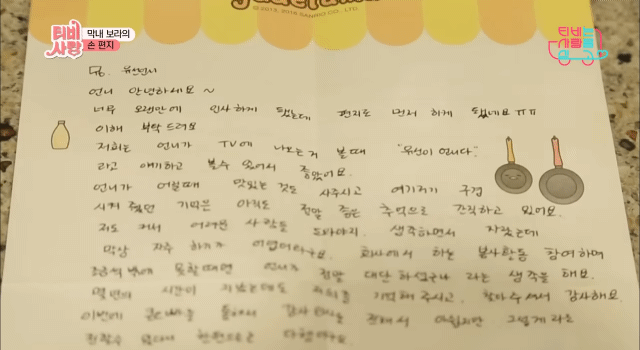 gudetama
© 2013, 2016 SANRIO CO., LTD.
티비는 사랑
막내 보라의
손 편지
티비는
사랑을
싣고
언니 안녕하세요~
너무 오랜만에 인사하게 됐는데 편지로 먼저 하게 됐네요 ㅠㅠ
이해 부탁 드려요
저희는 언니가 TV에 나오는 거 볼 때 "유선이 언니다"
라고 얘기하고 볼 수 있어서 좋았어요.
언니가 어릴때 맛있는 것도 사주시고 여기저기 구경
시켜 줬던 기억은 아직도 정말 좋은 추억으로 간직하고 있어요.
저도 커서 어려운 사람들 도와야지. 생각하면서 자랐는데
막상 자주 하기가 어렵더라구요. 회사에서 하는 봉사활동 참여하며
조금씩 못할때면 언니가 정말 대단하셨구나 라는 생각을 해요.
몇년의 시간이 지났는데도 저희를 기억해 주시고, 찾아주셔서 감사해요.
이번에 통해서 감사 전해서 아쉽지만 그렇게라도